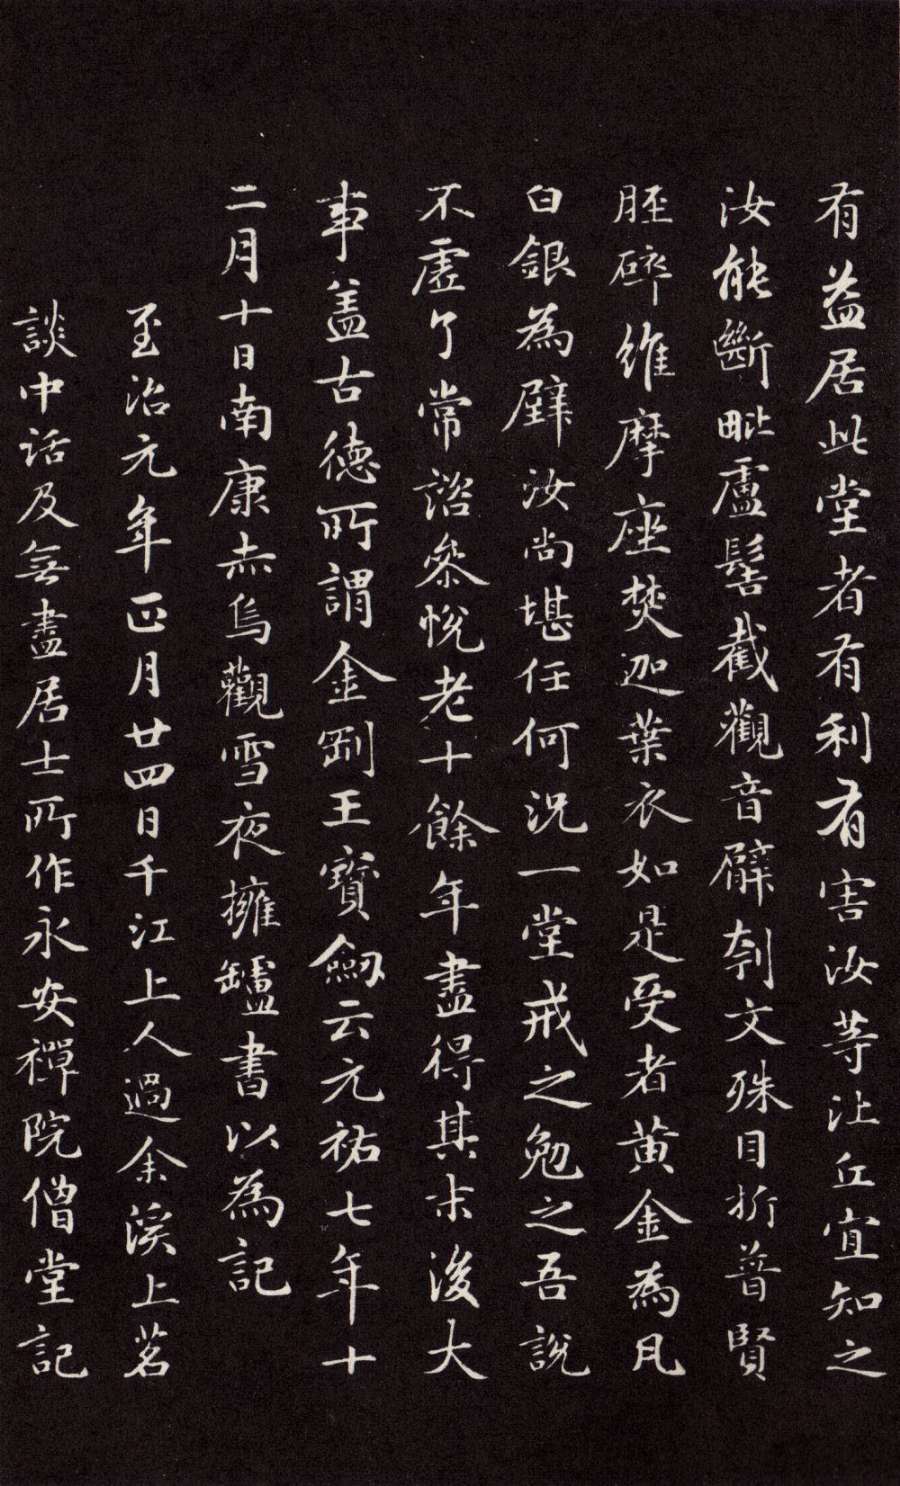 有益居此堂者有利有害汝等比丘宜知之
汝能斷毗盧髻截觀音臂刳文殊目折普賢
脛碎維摩座焚迦葉衣如是受者黃金為瓦
白銀為壁汝尚堪任何況一堂戒之勉之吾說
不虛了常諮參悅老十餘年盡得其末後大
事盖古德所謂金剛王寶劒云元祐七年十
二月十日南康赤烏觀雪夜擁罏書以為記
至治元年正月廿四日千江上人過余溪上茗
談中話及無盡居士所作永安禪院僧堂記